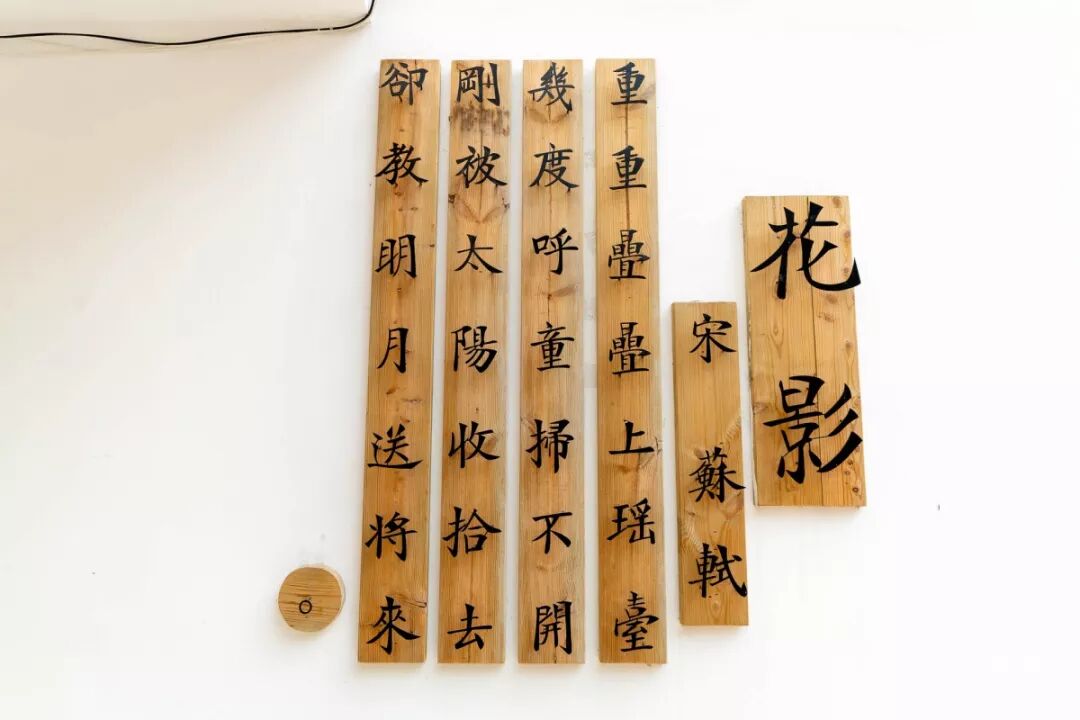 花影
宋 蘇軾
重重疊疊上瑶臺
幾度呼童掃不開
剛被太陽收拾去
卻教明月送将來
。